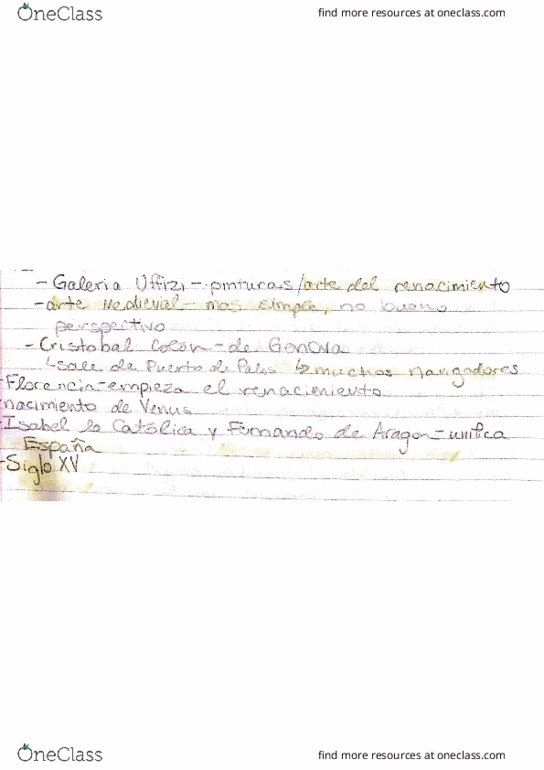 OneClass
find more resources at oneclass.com
- Galeria Uffizi - pinturas/arte del renacimiento
- arte Medieval - mas simple, no bueno
perspectivo
- Cristobal Colón - de Genova
↳ sale de Puerto de Palos ↳ muchos navigadores
Florencia - empieza el renacimiento
nacimiento de Venus
Isabel la Católica y Fernando de Aragon = unifica
España
- Siglo XV
OneClass
find more resources at oneclass.com